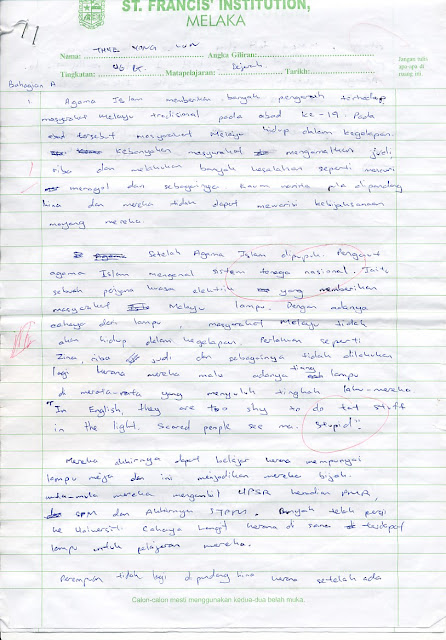 ST. FRANCIS' INSTITUTION,
MELAKA
11
Nama: THNE YONG LUN Angka Giliran:
Tingkatan: U6 Matapelajaran: Sejarah Tarikh:
Jangan tulis
apa-apa di
ruang ini.
Bahagian A
1. Agama Islam memberikan banyak pengaruh terhadap
masyarakat Melayu tradisional pada abad ke-19. Pada
abad tersebut masyarakat Melayu hidup dalam kegelapan.
Kebanyakan masyarakat mengamalkan judi,
riba dan melakukan banyak kesalahan seperti mencuri
merogol dan sebagainya. Kaum wanita pula dipandang
hina dan mereka tidak dapat mewarisi kebijaksanaan
moyang mereka.
Setelah Agama Islam dipeluk. Penganut
agama Islam mengenal sistem tenaga nasional. Iaitu
sebuah penjana kuasa elektrik yang memberikan
masyarakat Melayu lampu. Dengan adanya
cahaya dari lampu, masyarakat Melayu tidak
akan hidup dalam kegelapan. Perlakuan seperti
Zina, riba judi dan sebagainya tidak dilakukan
lagi kerana mereka malu adanya tiang lampu
di merata-rata yang menyuluh tingkah laku mereka
"In English, they are too shy to do tat stuff
in the light. Scared people see ma. Stupid!"
Mereka akhirnya dapat belajar kerana mempunyai
lampu meja dan ini menjadikan mereka bijak.
mula-mula mereka mengambil UPSR kemudian PMR,
SPM dan Akhirnya STPM. Banyak telah pergi
ke Universiti Cahaya Langit kerana di sana terdapat
lampu untuk pelajaran mereka.
Perempuan tidak lagi dipandang hina kerana setelah ada
Calon-calon mesti menggunakan kedua-dua belah muka.